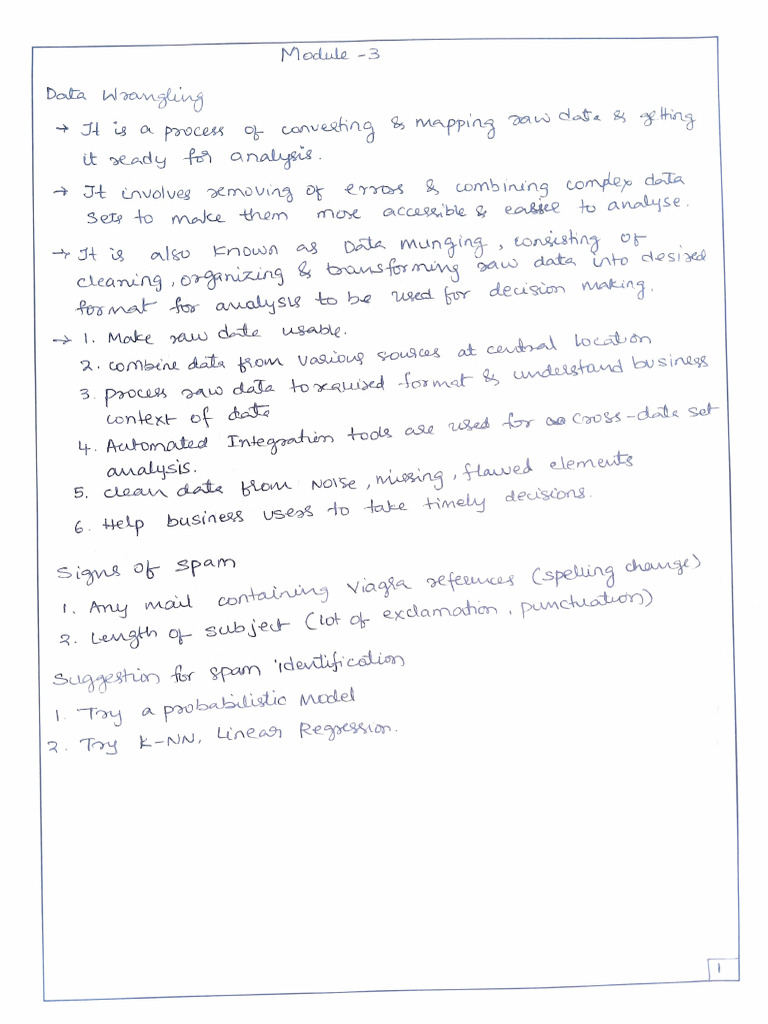 Module -3
Data Wrangling
→ It is a process of converting & mapping raw data & getting
it ready for analysis.
→ It involves removing of errors & combining complex data
sets to make them more accessible & easier to analyse.
→ It is also known as Data munging, consisting of
cleaning, organizing & transforming raw data into desired
format for analysis to be used for decision making.
→ 1. Make raw data usable.
2. combine data from various sources at central location
3. process raw data to required format & understand business
context of data
4. Automated Integration tools are used for cross-data set
analysis.
5. clean data from Noise, missing, flawed elements
6. Help business users to take timely decisions.
Signs of spam
1. Any mail containing Viagra references (spelling change)
2. Length of subject (lot of exclamation, punctuation)
Suggestion for spam identification
1. Try a probabilistic Model
2. Try K-NN, Linear Regression.
1